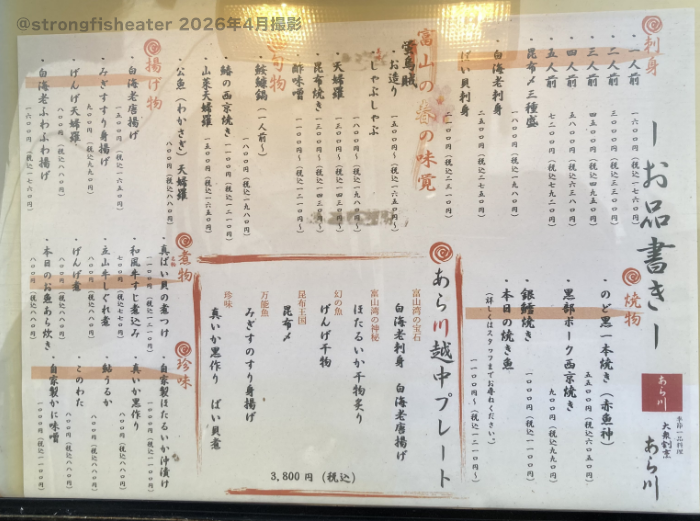 @strongfisheater 2026年4月撮影
ーお品書きー
刺身
・一人前
一六〇〇円（税込一七六〇円）
・二人前
三〇〇〇円（税込三三〇〇円）
・三人前
四五〇〇円（税込四九五〇円）
・四人前
五八〇〇円（税込六三八〇円）
・五人前
七二〇〇円（税込七九二〇円）
・昆布〆三種盛
一八〇〇円（税込一九八〇円）
・白海老刺身
二五〇〇円（税込二七五〇円）
・ばい貝刺身
二一〇〇円（税込二三一〇円）
富山の春の味覚
蛍烏賊
・お造り
一五〇〇円～（税込一六五〇円～）
・しゃぶしゃぶ
一八〇〇円～（税込一九八〇円～）
・天婦羅
一三〇〇円～（税込一四三〇円～）
・昆布焼き
一三〇〇円～（税込一四三〇円～）
・酢味噌
一一〇〇円～（税込一二一〇円～）
旬物
・鮟鱇鍋（一人前～）
一八〇〇円～（税込一九八〇円～）
・鰆の西京焼き
一一〇〇円（税込一二一〇円）
・山菜天婦羅
一五〇〇円（税込一六五〇円）
・公魚（わかさぎ）天婦羅
八〇〇円（税込八八〇円）
揚げ物
・白海老唐揚げ
一五〇〇円（税込一六五〇円）
・みぎすすり身揚げ
九〇〇円（税込九九〇円）
・げんげ天婦羅
八〇〇円（税込八八〇円）
・白海老ふわふわ揚げ
一六〇〇円（税込一七六〇円）
焼物
・のど黒一本焼き（赤魚神）
五五〇〇円（税込六〇五〇円）
・黒部ポーク西京焼き
九〇〇円（税込九九〇円）
・銀鱈焼き
一〇〇〇円（税込一一〇〇円）
・本日の焼き魚
一一〇〇円～（税込一二一〇円～）
（詳しくはスタッフまでお尋ねください。）
あら川越中プレート
富山湾の宝石
白海老刺身　白海老唐揚げ
富山湾の神秘
ほたるいか干物炙り
幻の魚
げんげ干物
昆布王国
昆布〆
万能魚
みぎすのすり身揚げ
珍味
真いか黒作り　ばい貝煮
3,800円（税込）
煮物
・真ばい貝の煮つけ
一一〇〇円（税込一二一〇円）
・和風牛すじ煮込み
七〇〇円（税込七七〇円）
・立山牛しぐれ煮
八〇〇円（税込八八〇円）
・げんげ煮
八〇〇円（税込八八〇円）
・本日のお魚あら炊き
八〇〇円（税込八八〇円）
珍味
・自家製ほたるいか沖漬け
一〇〇〇円（税込一一〇〇円）
・真いか黒作り
八〇〇円（税込八八〇円）
・鮎うるか
八〇〇円（税込八八〇円）
・このわた
八〇〇円（税込八八〇円）
・自家製かに味噌
一〇〇〇円（税込一一〇〇円）
あら川
季節一品料理
大衆割烹
あら川